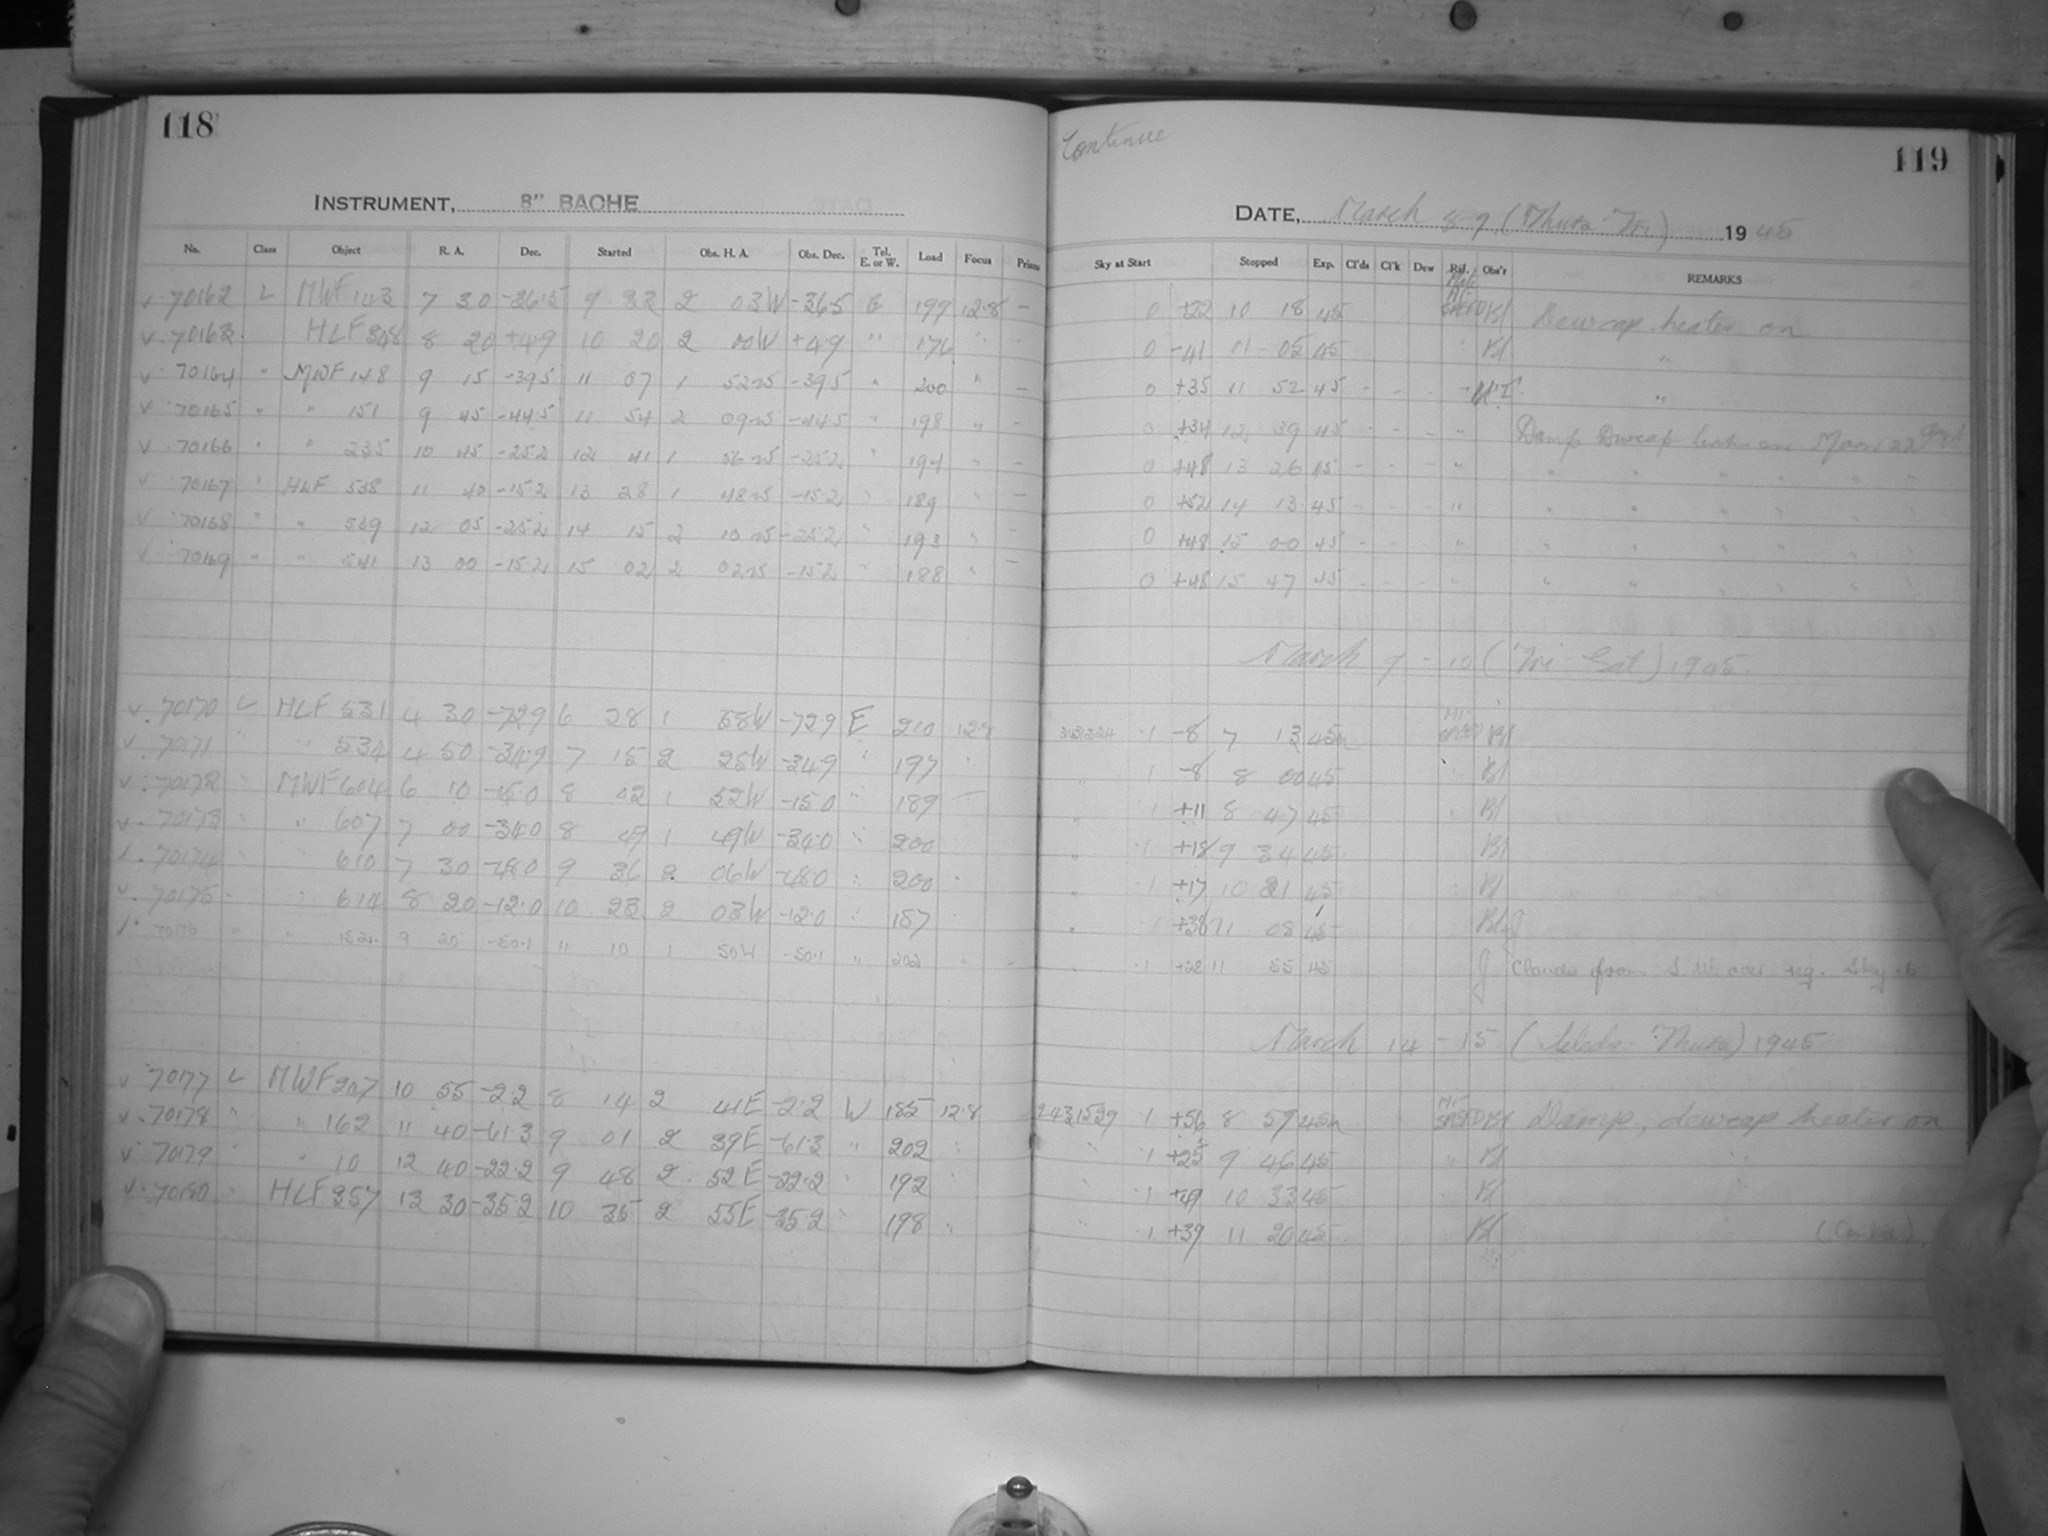 118
INSTRUMENT, 8" BACHE
No. Class Object R. A. Dec. Started Obs. H. A. Obs. Dec. Tel. E. or W. Load Focus Prism
70162 L MWF 143 7 30 -36.5 9 33 2 03W -36.5 E 199 12.8 -
70163 HLF 8 20 +4.9 10 20 2 00W +4.9 " 176 "
70164 " MWF 148 9 15 -39.5 11 07 1 52W -39.5 " 200 " -
70165 " " 151 9 45 -44.5 11 54 2 09W -44.5 " 198 " -
70166 " " 235 10 45 -25.2 12 41 1 56W -25.2 " 194 " -
70167 " HLF 538 11 40 -15.2 13 28 1 48W -15.2 " 189 " -
70168 " " 539 12 05 -25.2 14 15 2 10W -25.2 " 193 " -
70169 " " 541 13 00 -15.2 15 02 2 02W -15.2 " 188 " -
70170 L HLF 531 4 30 -72.9 6 28 1 58W -72.9 E 210 12.8
70171 " " 534 4 50 -34.9 7 15 2 25W -34.9 " 197 "
70172 " MWF 604 6 10 -15.0 8 02 1 52W -15.0 " 189
70173 " " 607 7 00 -34.0 8 49 1 49W -34.0 " 200
70174 " " 610 7 30 -48.0 9 36 2 06W -48.0 " 200 "
70175 " 614 8 20 -12.0 10 23 2 03W -12.0 " 187
70176 " " 9 20 -50.1 11 10 1 50W -50.1 " 202 " -
70177 L MWF 207 10 55 -2.2 8 14 2 41E -2.2 W 185 12.8
70178 " " 162 11 40 -61.3 9 01 2 39E -61.3 " 202 "
70179 " " 10 12 40 -22.2 9 48 2 52E -22.2 " 192
70180 " HLF 357 13 30 -35.2 10 35 2 55E -35.2 " 198 "
Continue
119
DATE, March 8-9 (Thurs-Fri) 1945
Sky at Start Stopped Exp. Cl'ds Cl'k Dew Rif. Obs'r REMARKS
0 +22 10 18 45 Bl Dewcap heater on
0 -41 11 05 45 Bl "
0 +35 11 52 45 - - - "
0 +34 12 39 45 - - - " Damp Dewcap
0 +48 13 26 45 - - - " " " " " "
0 +52 14 13 45 - - - " " " " " "
0 +48 15 00 45 - - - " " " " " "
0 +48 15 47 45 - - - " " " " " "
March 9-10 (Fri-Sat) 1945.
1 -8 7 13 45m Bl
" 1 -8 8 00 45 " Bl
" 1 +11 8 47 45 Bl
" 1 +18 9 34 45 Bl
" 1 +17 10 21 45 Bl
" 1 +38 11 08 45 Bl J
" 1 +28 11 55 45 J Clouds from S.W. over reg. Sky
March 14-15 (Weds-Thurs) 1945
2431529 1 +56 8 59 45m Bl Damp, dewcap heater on
" 1 +25 9 46 45 " Bl "
1 +49 10 33 45 Bl
" 1 +39 11 20 45 Bl